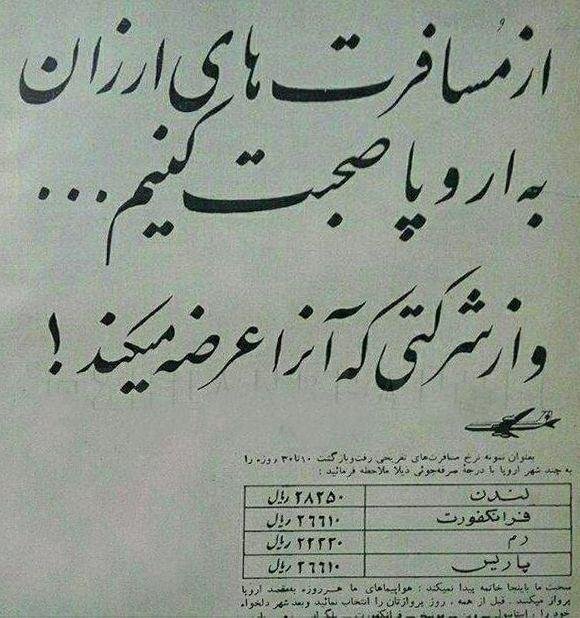 از مُسافرت های ارزان
به اروپا صحبت کنیم...
و از شرکتی که آنرا عرضه میکند!
بعنوان نمونه نرخ مسافرت‌های تفریحی رفت‌وبازگشت ۱۰تا۳۰ روزه را
به چند شهر اروپا با درجهٔ صرفه‌جوئی ذیلا ملاحظه فرمائید:
لندن ۲۸۲۵۰ ریال
فرانکفورت ۲۶۶۱۰ ریال
رم ۲۲۲۲۰ ریال
پاریس ۲۶۶۱۰ ریال
صحبت ما باینجا خاتمه پیدا نمیکند: هواپیماهای ما هرروزه بمقصد اروپا
پرواز میکنند. قبل از همه، روز پروازتان را انتخاب نمائید وبعد شهر دلخواه
خود را، استانبول